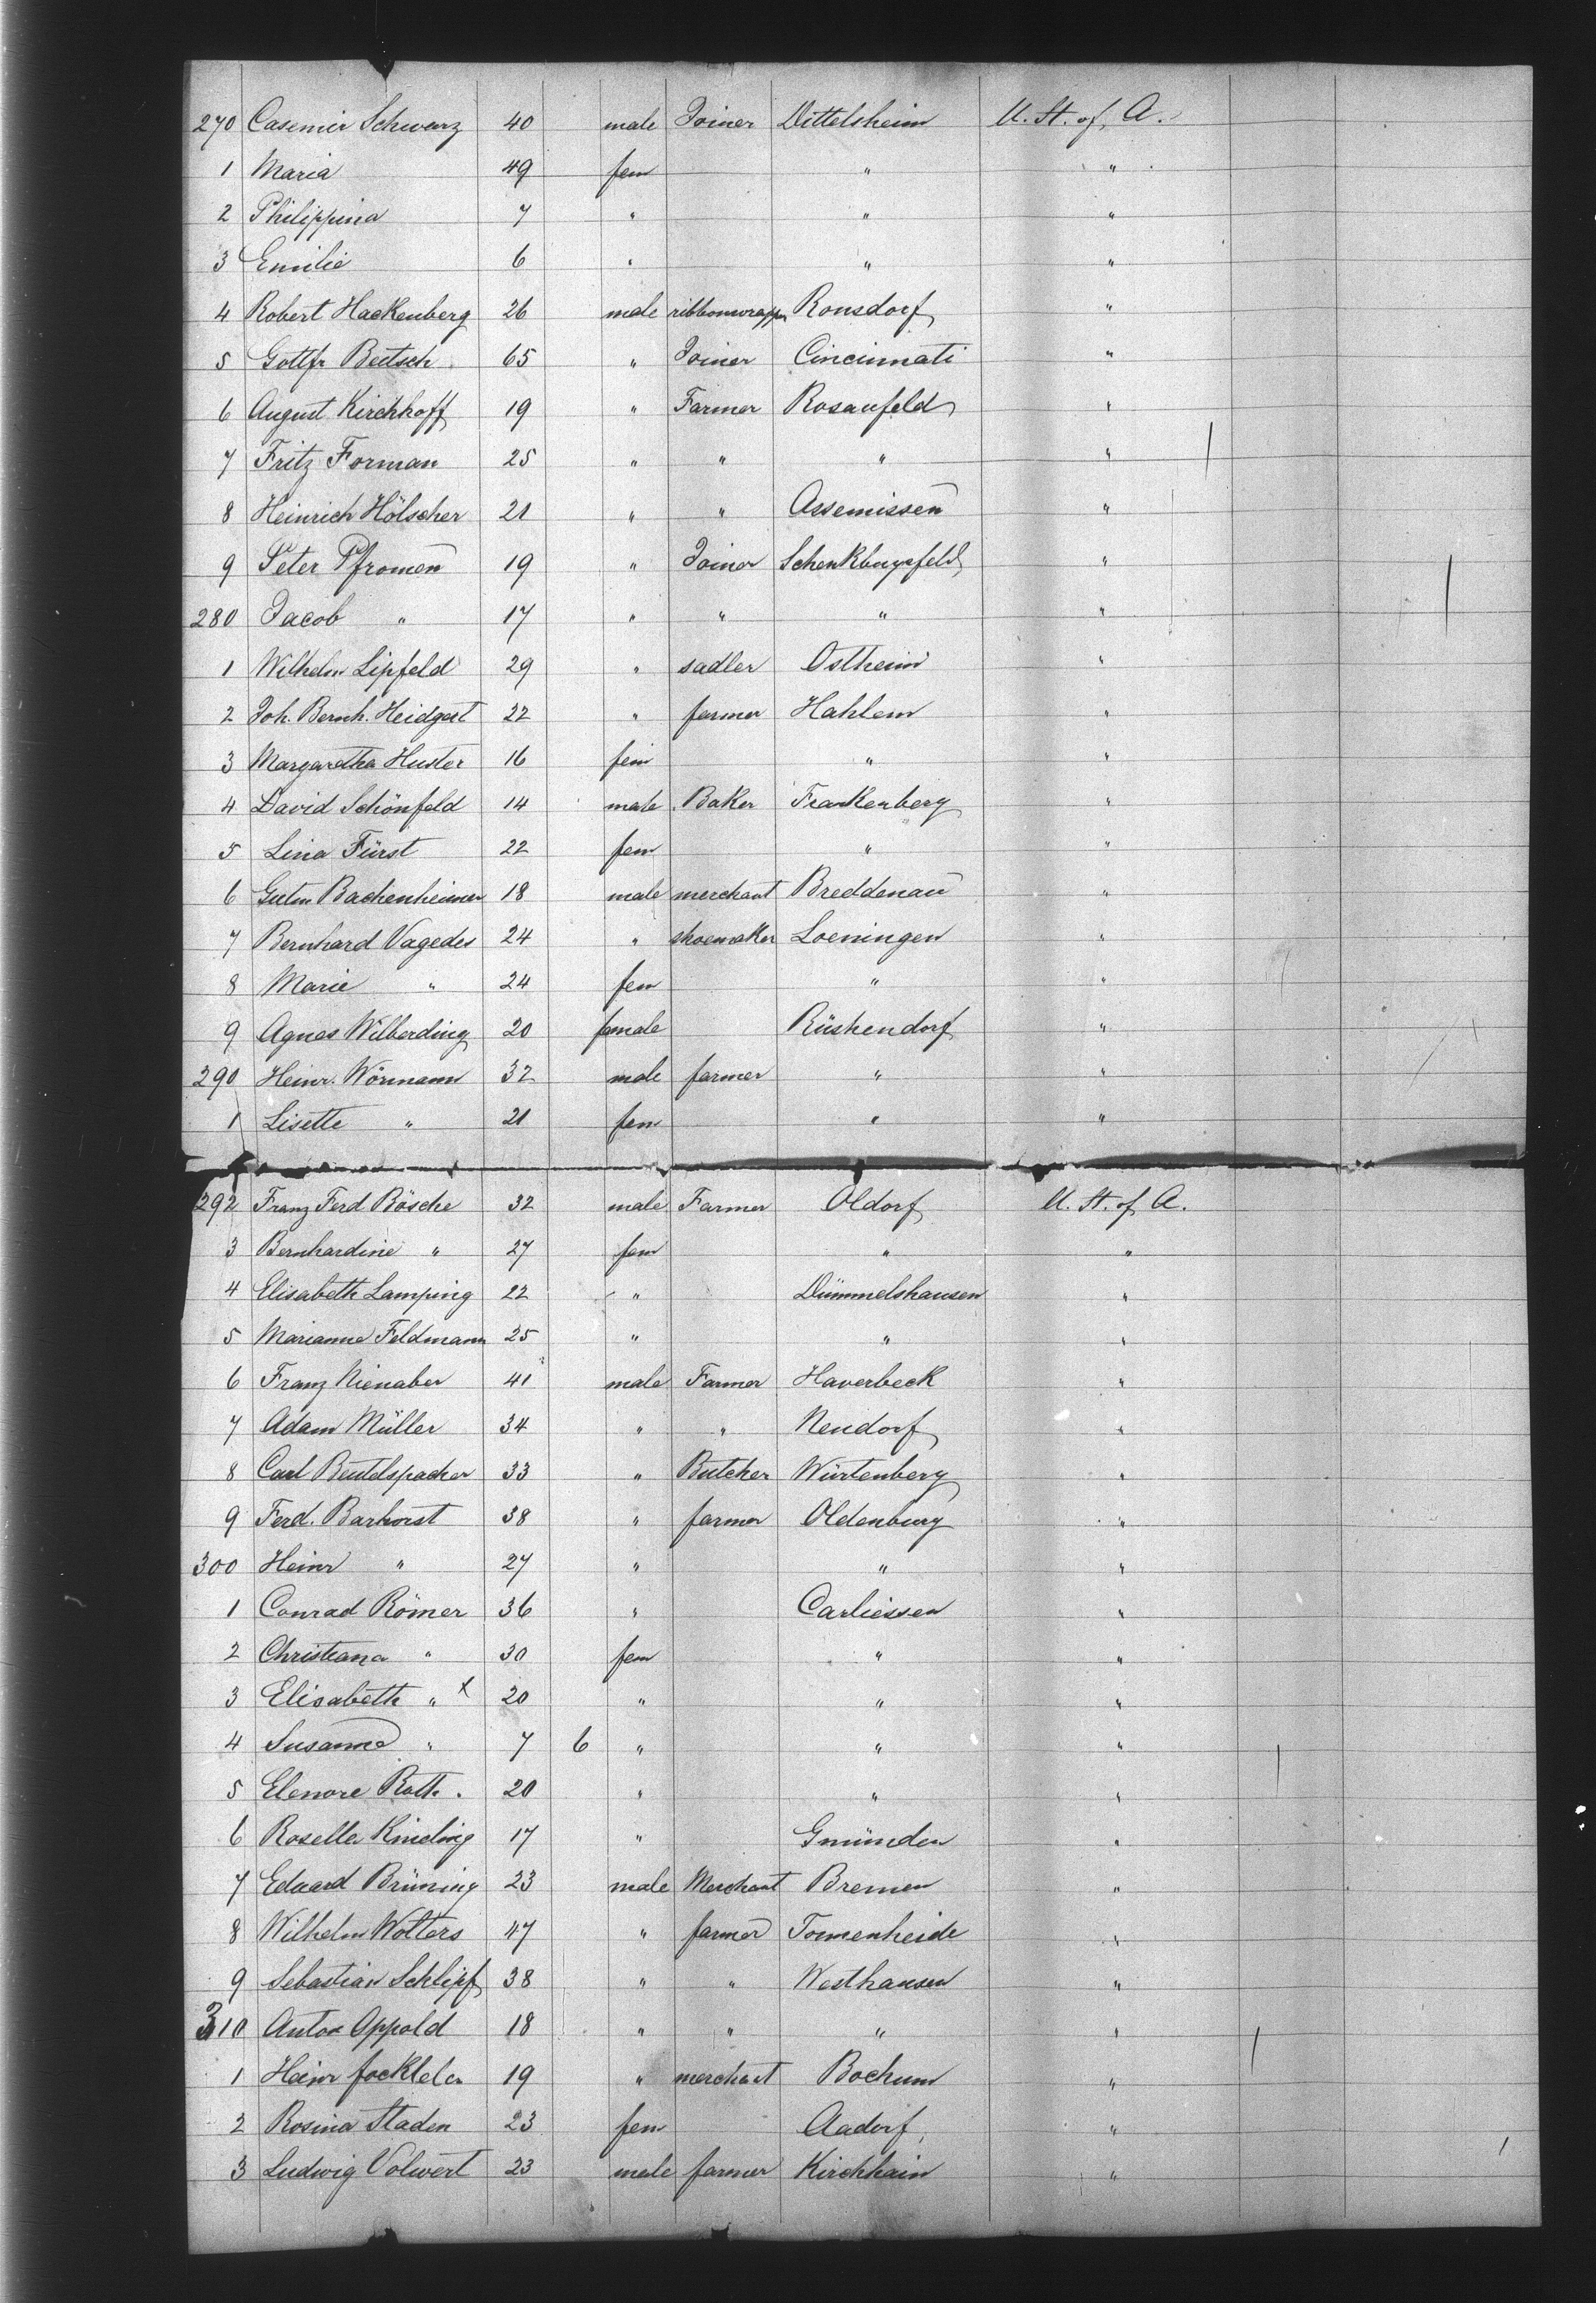 270 Casemir Schwarz 40 male Joiner Dittelsheim U. St. of A.
1 Maria 49 fem " "
2 Philippina 7 " " "
3 Emilie 6 " " "
4 Robert Hackenberg 26 male ribbonwrapper Ronsdorf "
5 Gottfr Beitsch 65 " Joiner Cincinnati "
6 August Kirchhoff 19 " Farmer Rosanfeld "
7 Fritz Forman 25 " " " "
8 Heinrich Hölscher 21 " " Assemissen "
9 Peter Pfromen 19 " Joiner "
280 Jacob " 17 " " " "
1 Wilhelm Lipfeld 29 " sadler Ostheim "
2 Joh. Bernh. Heidgert 22 " farmer Hahlem "
3 Margaretha Huster 16 fem " "
4 David Schönfeld 14 male Baker Frankenberg "
5 Lina Fürst 22 fem " "
6 Gutm Bachenheimer 18 male merchant Breddenau "
7 Bernhard Vagedes 24 " shoemaker Loeningen "
8 Marie " 24 fem " "
9 Agnes Wilberding 20 female Rüshendorf "
290 Heinr. Wörmann 32 male farmer " "
1 Lisette " 21 fem " "
292 Franz Ferd Bösche 32 male Farmer Oldorf U. St. of A.
3 Bernhardine " 27 fem " "
4 Elisabeth Lamping 22 " Dümmelshausen "
5 Marianne Feldmann 25 " " "
6 Franz Nienaber 41 male Farmer Haverbeck "
7 Adam Müller 34 " " Nendorf "
8 Carl Beutelspacher 33 " Butcher Würtenberg "
9 Ferd. Barhorst 38 " farmer Oldenburg "
300 Heinr " 27 " " "
1 Conrad Römer 36 " Carliessen "
2 Christiana " 30 fem " "
3 Elisabeth " x 20 " " "
4 Susanne " 7 6 " " "
5 Elenore Roth. 20 " " "
6 Rosella Kinding 17 " Gmünden "
7 Eduard Brüning 23 male Merchant Bremen "
8 Wilhelm Wolters 47 " farmer Tormenheide "
9 Sebastian Schlipf 38 " " Westhausen "
310 Anton Oppold 18 " " " "
1 Heinr 19 " merchant Bochum "
2 Rosina Staden 23 fem Aadorf "
3 Ludwig Volwert 23 male farmer Kirchhain "